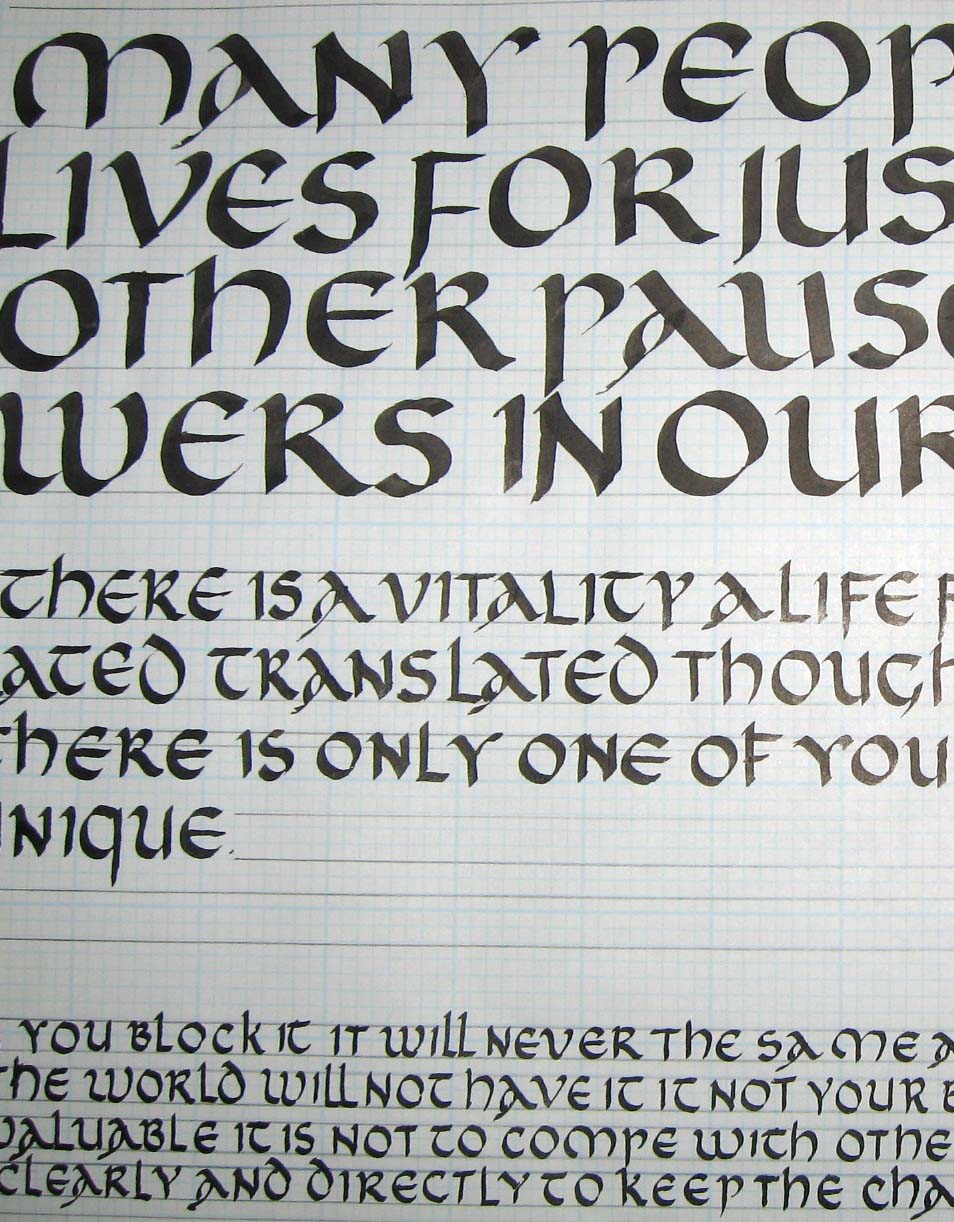 MANY PEOP
LIVES FOR JUS
OTHER PAUSE
WERS IN OUR
THERE IS A VITALITY A LIFE F
ATED TRANSLATED THOUGH
THERE IS ONLY ONE OF YOU
NIQUE.
YOU BLOCK IT IT WILL NEVER THE SAME A
THE WORLD WILL NOT HAVE IT IT NOT YOUR B
VALUABLE IT IS NOT TO COMPE WITH OTHE
CLEARLY AND DIRECTLY TO KEEP THE CHA